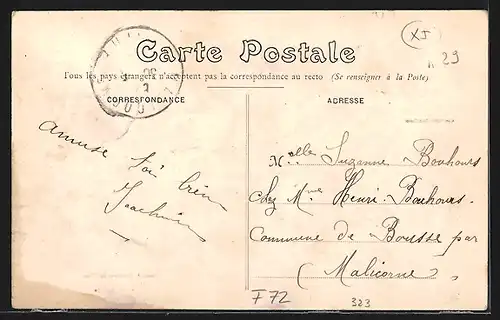 XI
29
Carte Postale
Tous les pays étrangers n'acceptent pas la correspondance au recto (Se renseigner à la Poste)
CORRESPONDANCE
ADRESSE
amuse toi bien
Melle Suzanne Bouhours
chez Mme Henri Bouhours
Commune de Bousse par
(Malicorne)
F 72
323